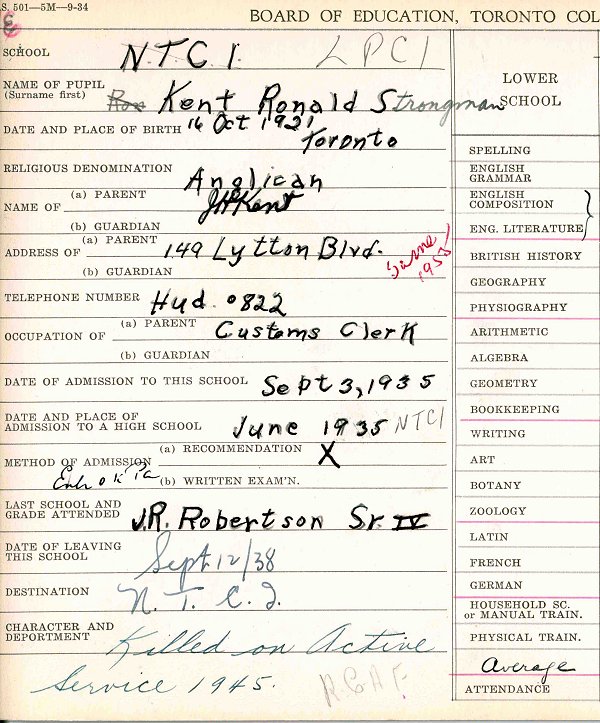 S. 501—5M—9-34
BOARD OF EDUCATION, TORONTO COL
SCHOOL N.T.C.I. LPCI
NAME OF PUPIL (Surname first) Ron Kent Ronald Strongman
DATE AND PLACE OF BIRTH 16 Oct 1921
Toronto
RELIGIOUS DENOMINATION Anglican
NAME OF (a) PARENT JHKent
(b) GUARDIAN
ADDRESS OF (a) PARENT 149 Lytton Blvd.
(b) GUARDIAN same 1955
TELEPHONE NUMBER Hud. 0822
OCCUPATION OF (a) PARENT Customs Clerk
(b) GUARDIAN
DATE OF ADMISSION TO THIS SCHOOL Sept 3, 1935
DATE AND PLACE OF
ADMISSION TO A HIGH SCHOOL June 1935 NTCI
METHOD OF ADMISSION (a) RECOMMENDATION X
(b) WRITTEN EXAM'N.
LAST SCHOOL AND
GRADE ATTENDED J.R. Robertson Sr. IV
DATE OF LEAVING
THIS SCHOOL Sept 12/38
DESTINATION N.T.C.I.
CHARACTER AND
DEPORTMENT Killed on Active
Service 1945. R.C.A.F.
LOWER
SCHOOL
SPELLING
ENGLISH
GRAMMAR
ENGLISH
COMPOSITION
ENG. LITERATURE
BRITISH HISTORY
GEOGRAPHY
PHYSIOGRAPHY
ARITHMETIC
ALGEBRA
GEOMETRY
BOOKKEEPING
WRITING
ART
BOTANY
ZOOLOGY
LATIN
FRENCH
GERMAN
HOUSEHOLD SC.
or MANUAL TRAIN.
PHYSICAL TRAIN.
Average
ATTENDANCE